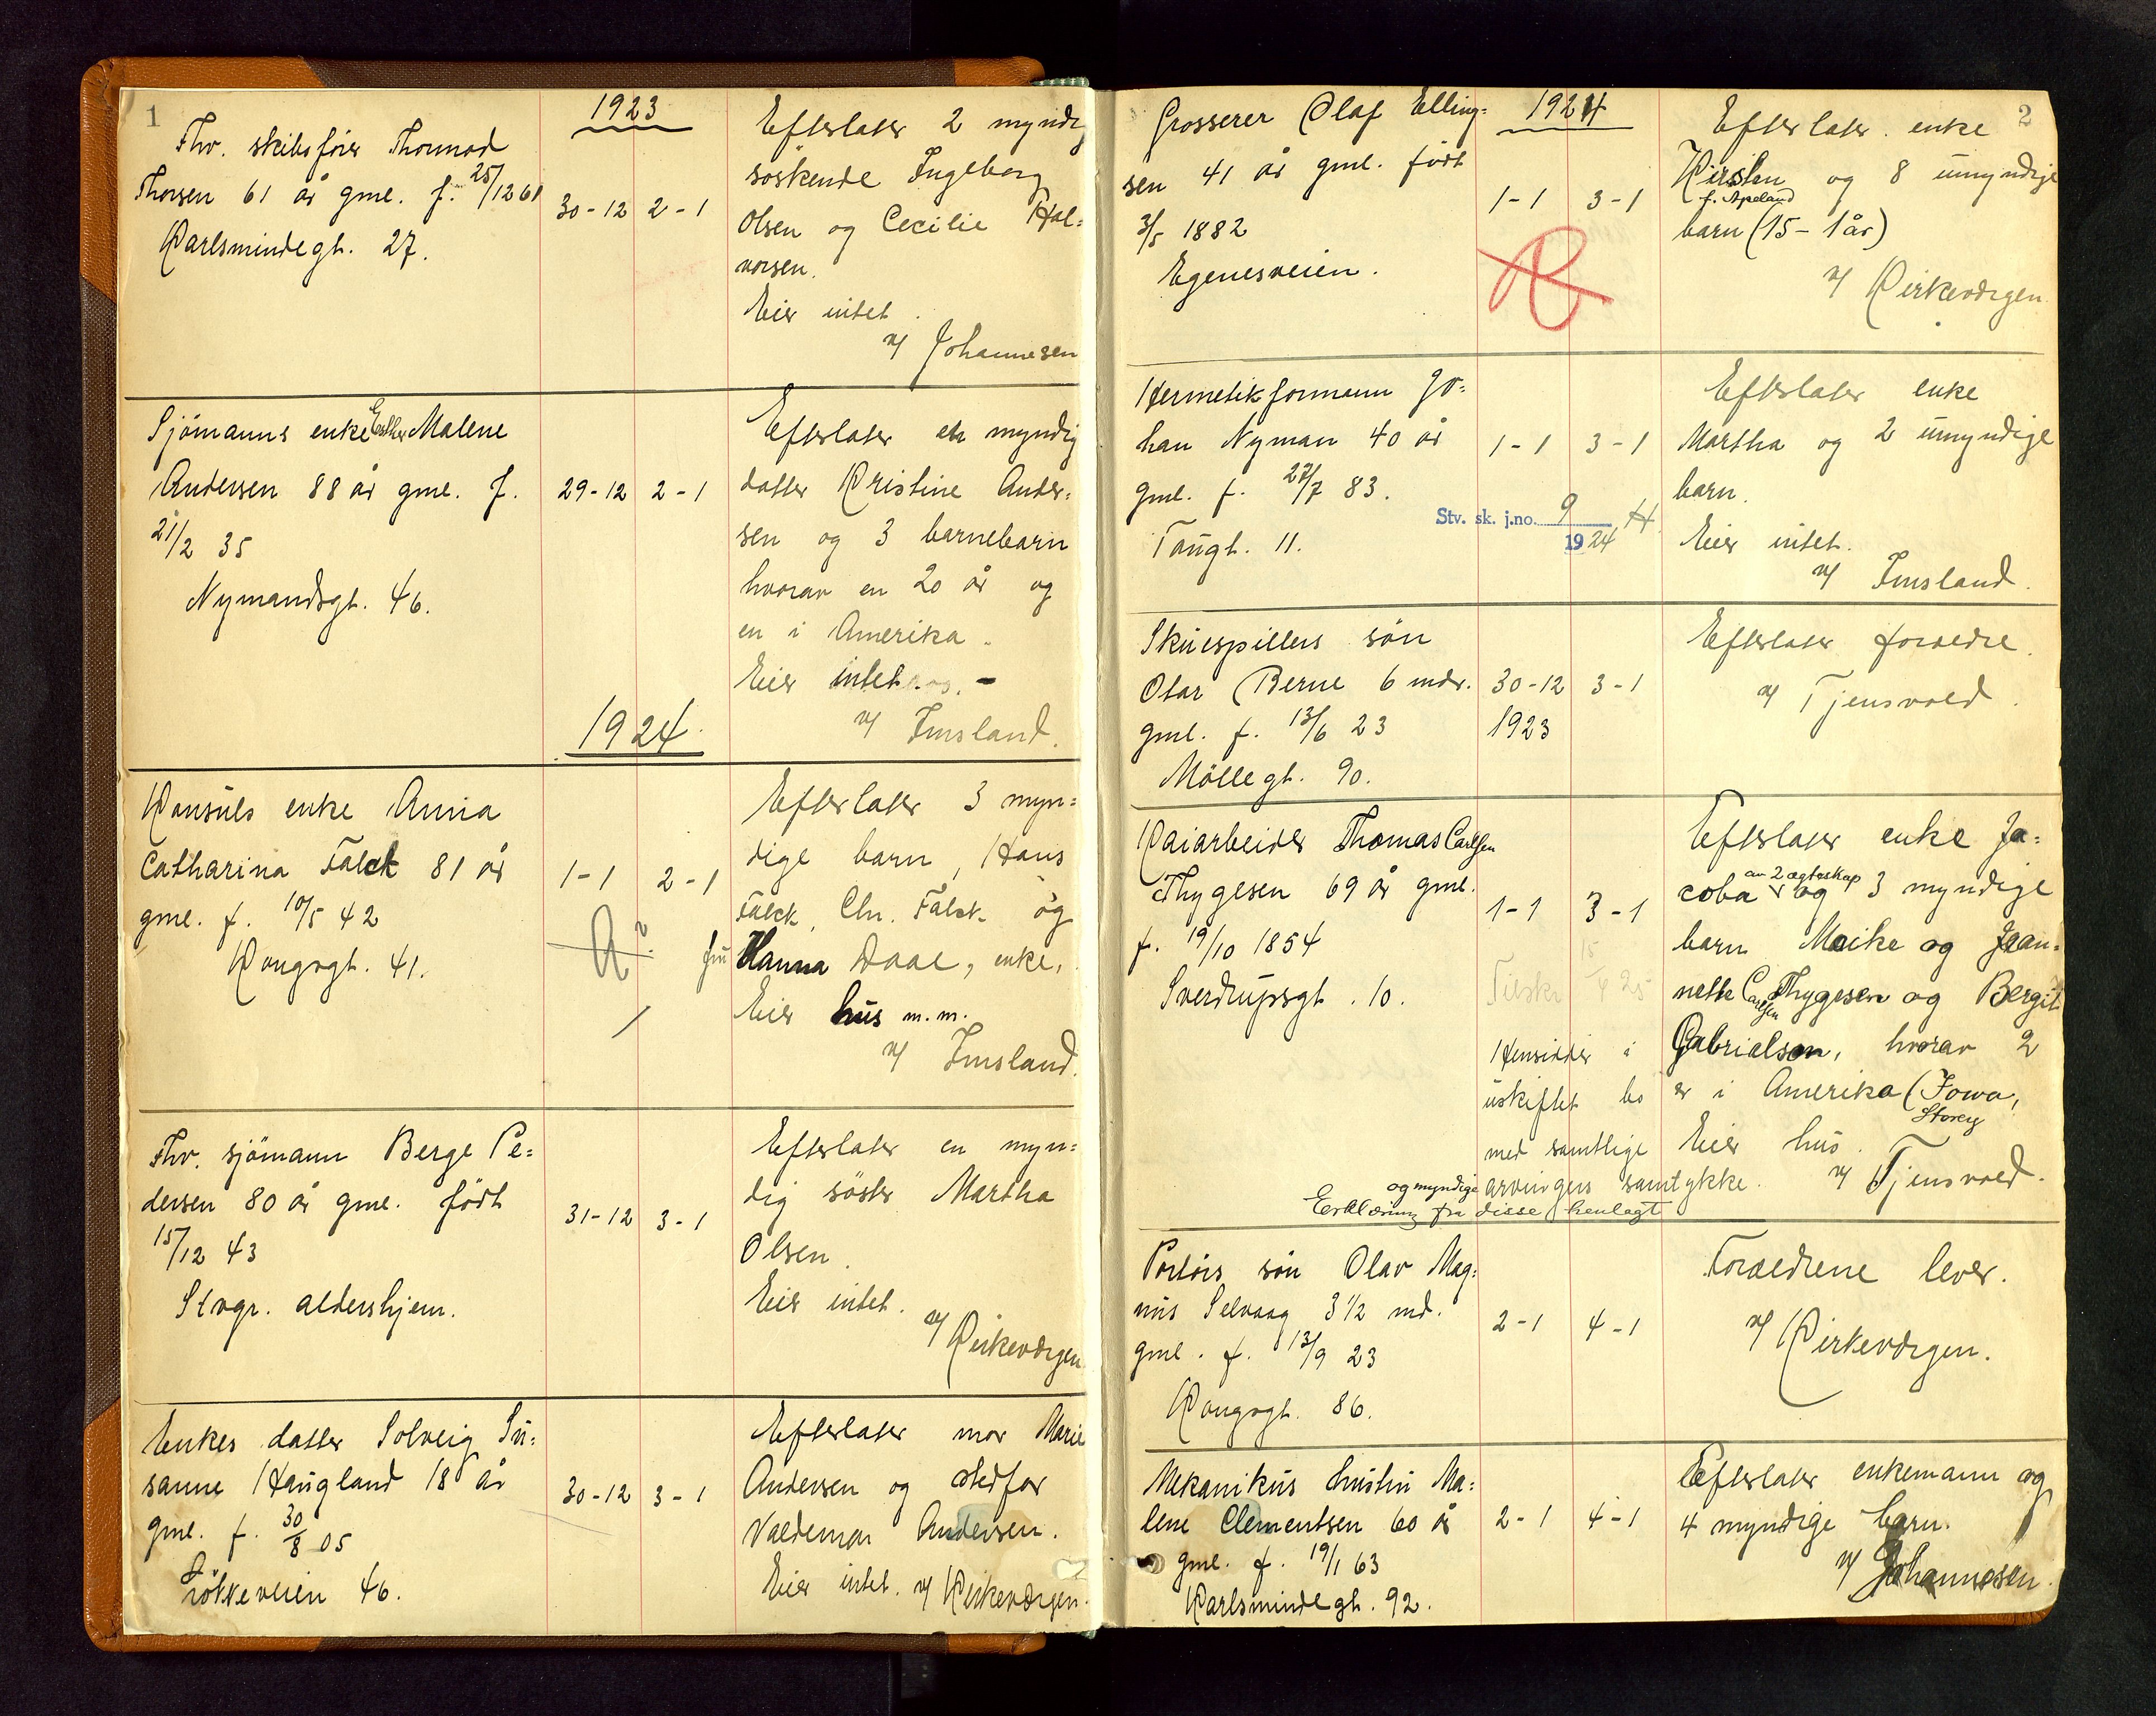 1
1923
Thv. skibsfører Thormod
Thorsen 61 år gml. f. 25/12 61
Karlsmindegt. 27.
30-12 2-1
Efterlater 2 myndig
søskende Ingeborg
Olsen og Cecilie Hal=
vorsen.
Eier intet.
v/ Johannesen
Sjømanns enke Esther Malene
Andersen 88 år gml. f.
21/2 35
Nymandsgt. 46.
29-12 2-1
Efterlater en myndig
datter Kristine Ander=
sen og 3 barnebarn
hvorav en 20 år og
en i Amerika.
Eier intet. -
v/ Imsland.
1924.
Konsuls enke Anna
Catharina Falck 81 år
gml. f. 10/5 42
Kongsgt. 41.
1-1 2-1
Efterlater 3 myn=
dige barn, Hans
Falck, Chr. Falck og
fru Hanna Daae, enke,
Eier hus m.m.
v/ Imsland.
Fhv. sjømann Berge Pe=
dersen 80 år gml. født
15/12 43
Stvgr. aldershjem.
31-12 3-1
Efterlater en myn=
dig søster Martha
Olsen.
Eier intet.
v/ Kirkevergen
Enkes datter Solveig Su=
sanne Haugland 18 år
gml. f. 30/8 05
Løkkeveien 46.
30-12 3-1
Efterlater mor Marie
Andersen og stedfar
Valdemar Andersen.
Eier intet. v/ Kirkevergen.
2
1924
Grosserer Olaf Elling=
sen 41 år gml. født
3/5 1882
Egenesveien.
1-1 3-1
Efterlater enke
Kirsten og 8 umyndige
f. Apeland
barn (15 - 1 år)
v/ Kirkevergen.
Hermetikformann Jo=
han Nyman 40 år
gml. f. 27/7 83.
Taugt. 11.
1-1 3-1
Stv. sk. j.no. 9
1924
Efterlater enke
Martha og 2 umyndige
barn.
Eier intet.
v/ Imsland.
Skuespillers søn
Otar Berne 6 mdr.
gml. f. 13/6 23
Møllegt. 90.
30-12 3-1
1923
Efterlater foreldre.
v/ Tjensvold.
Kaiarbeider Thomas Carlsen
Thygesen 69 år gml.
f. 19/10 1854
Sverdrupsgt. 10.
1-1 3-1
Efterlater enke Ja=
av 2 egteskap
coba og 3 myndige
barn Meike og Jean=
nette Carlsen Thygesen og Bergit
Gabrielsen, hvorav 2
er i Amerika (Iowa,
Storey
Eier hus.
v/ Tjensvold.
Hensidder i
uskiftet bo
med samtlige
og myndige arvingers samtykke.
Erklæring fra disse henlagt
Portørs søn Olav Mag=
nus Selvaag 3 1/2 md.
gml. f. 13/9 23
Kongsgt. 86.
2-1 4-1
Foreldrene lever.
v/ Kirkevergen.
Mekanikus hustru Ma=
lene Clementsen 60 år
gml. f. 19/1 63
Karlsmindegt. 92.
2-1 4-1
Efterlater enkemann og
4 myndige barn.
v/ Johannesen.